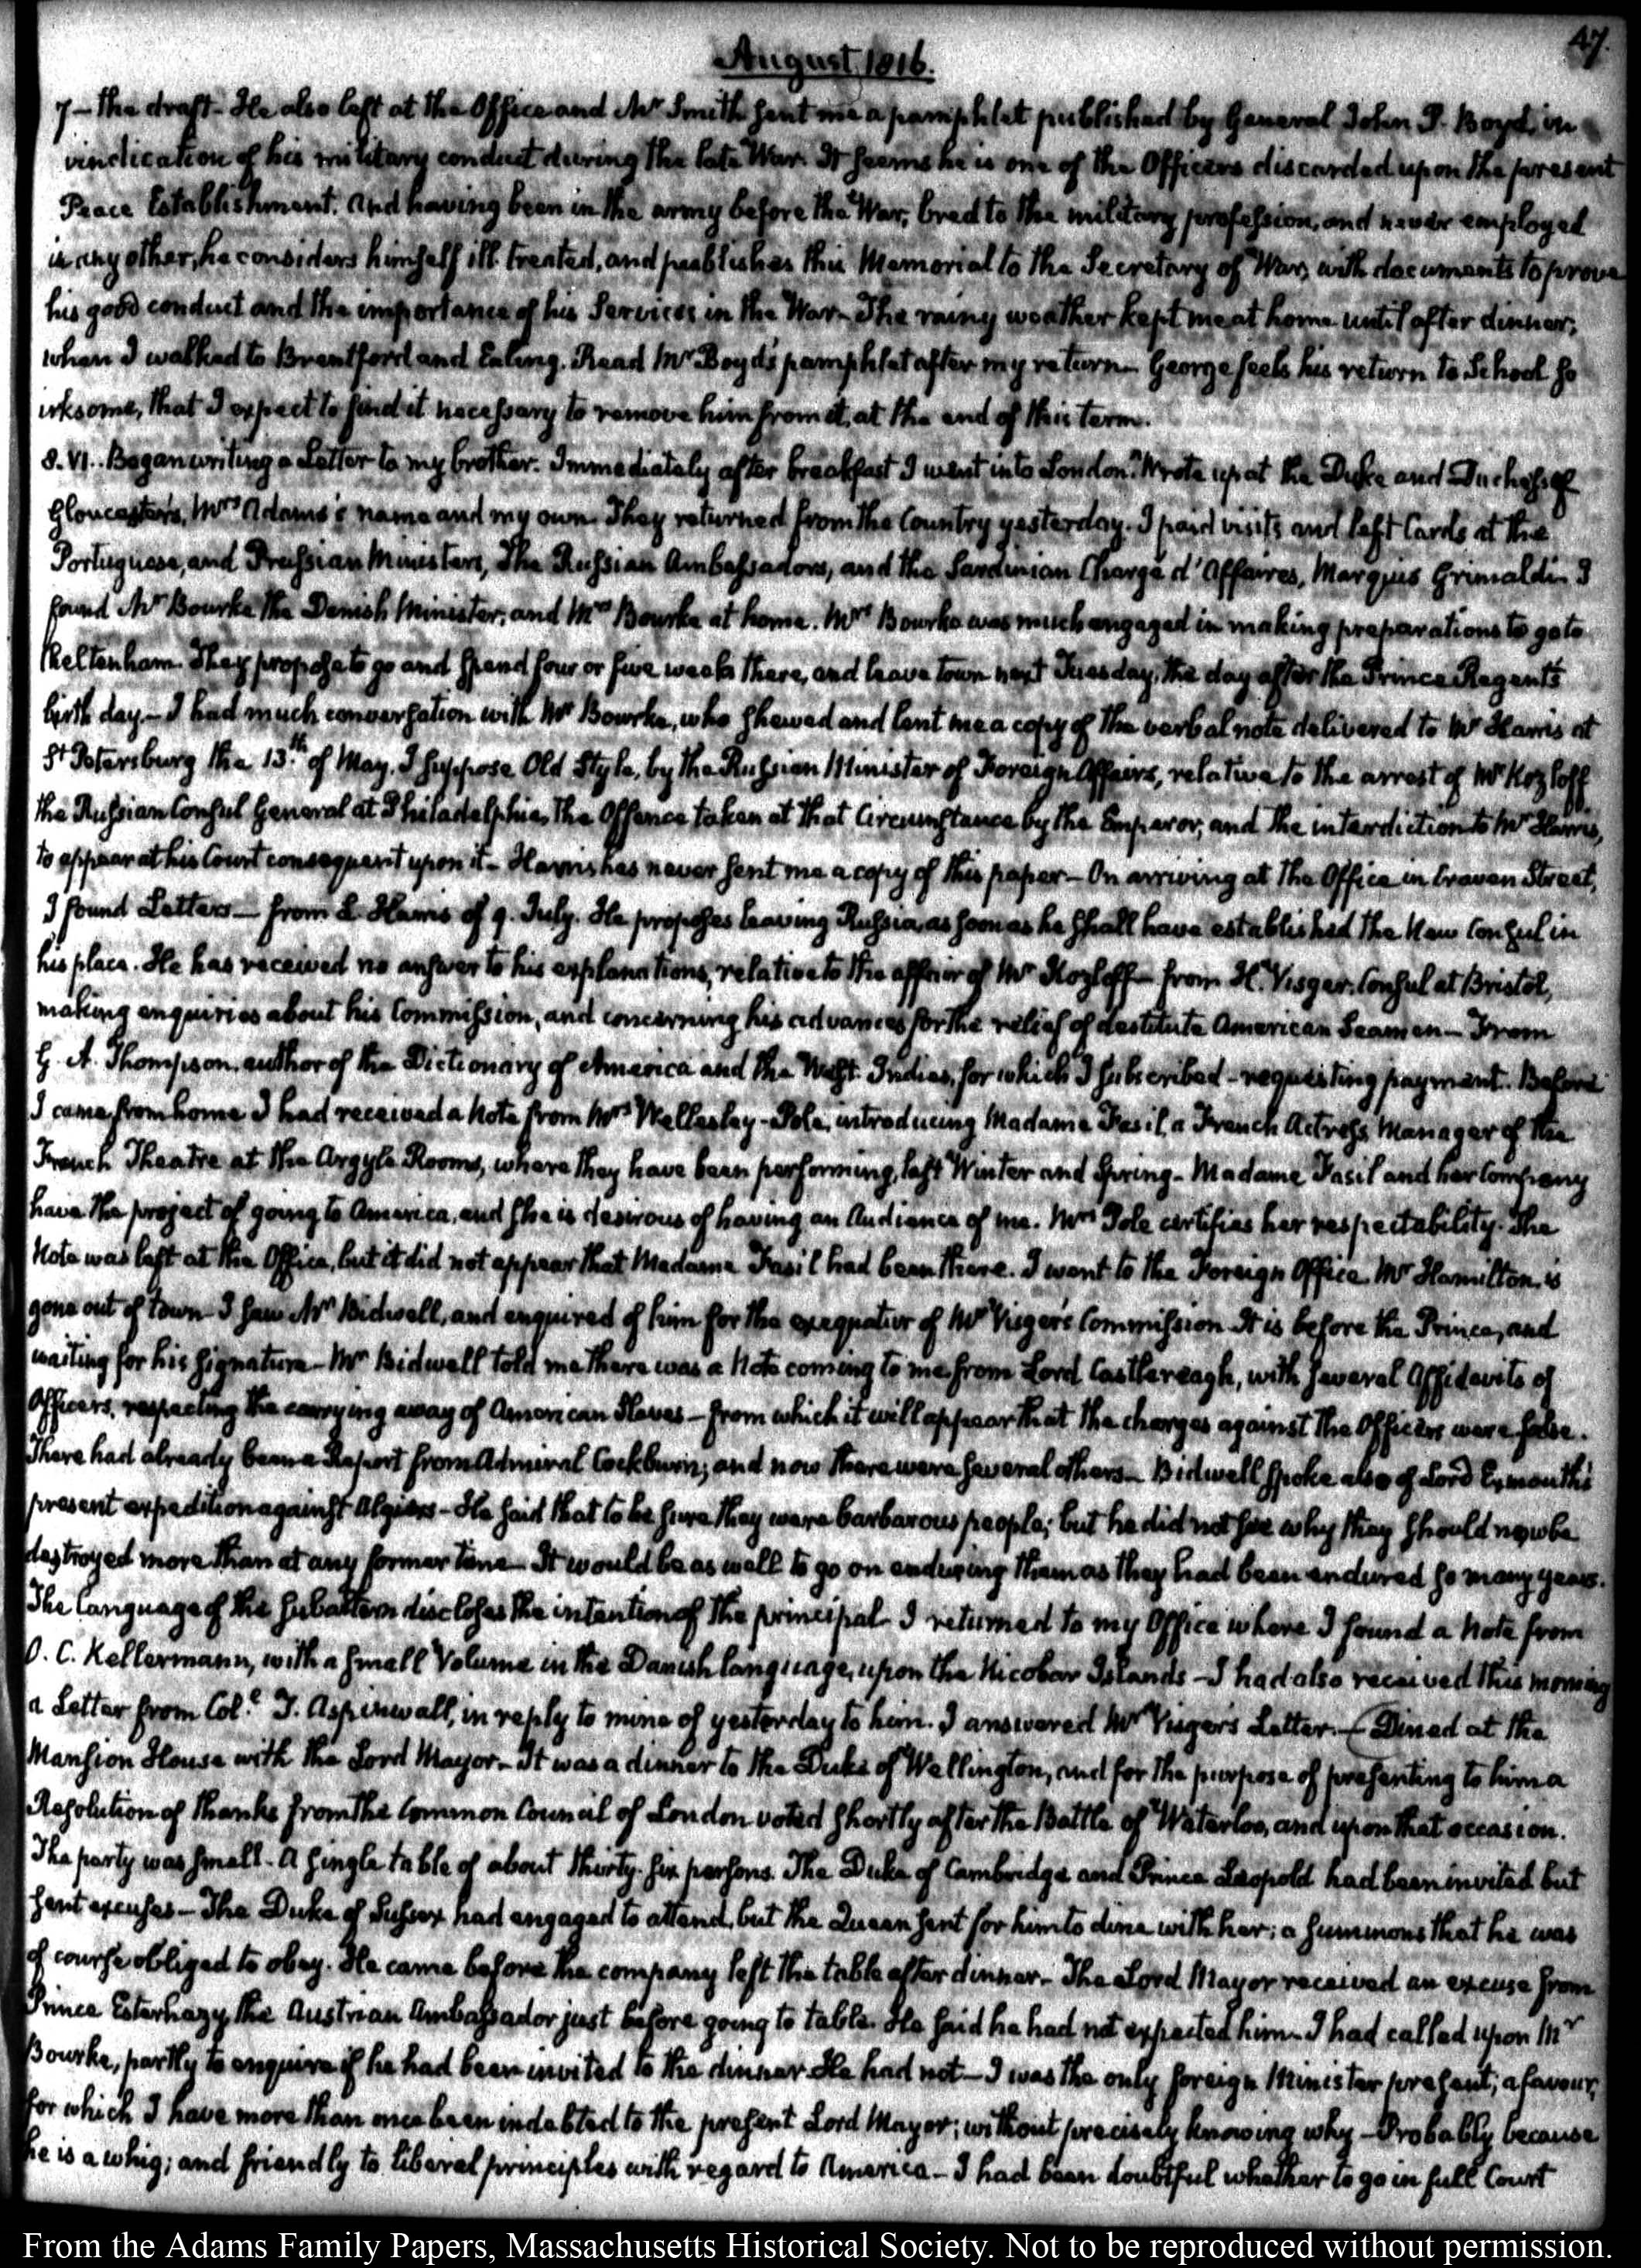 47.
August 1816.
7 — the draft — He also left at the Office and Mr Smith sent me a pamphlet published by General John P. Boyd, in
vindication of his military conduct during the late War. It seems he is one of the Officers discarded upon the present
Peace Establishment. And having been in the army before the War, bred to the military profession, and never employed
in any other, he considers himself ill treated, and publishes this Memorial to the Secretary of War, with documents to prove
his good conduct and the importance of his Services in the War — The rainy weather kept me at home until after dinner,
when I walked to Brentford and Ealing. Read Mr Boyd's pamphlet after my return — George feels his return to School so
irksome, that I expect to find it necessary to remove him from it, at the end of this term.
8. VI.. Began writing a Letter to my brother. Immediately after breakfast I went into London. Wrote up at the Duke and Duchess of
Gloucester's, Mrs Adams's name and my own. They returned from the Country yesterday. I paid visits and left Cards at the
Portuguese, and Prussian Ministers, The Russian Ambassadors, and the Sardinian Chargé d'Affaires, Marquis Grimaldi — I
found Mr Bourke the Danish Minister, and Mrs Bourke at home. Mrs Bourke was much engaged in making preparations to go to
Cheltenham. They propose to go and spend four or five weeks there, and leave town next Tuesday, the day after the Prince Regent's
birth day — I had much conversation with Mr Bourke, who shewed and lent me a copy of the verbal note delivered to Mr Harris at
St Petersburg the 13.th of May, I suppose Old Style, by the Russian Minister of Foreign Affairs, relative to the arrest of Mr Kozloff
the Russian Consul General at Philadelphia, the Offence taken at that Circumstance by the Emperor, and the interdiction to Mr Harris,
to appear at his Court consequent upon it — Harris has never sent me a copy of this paper — On arriving at the Office in Craven Street,
I found Letters — from L. Harris of 9. July. He proposes leaving Russia, as soon as he shall have established the New Consul in
his place. He has received no answer to his explanations, relative to the affair of Mr Kozloff — from H. Visger. Consul at Bristol,
making enquiries about his Commission, and concerning his advances for the relief of destitute American Seamen — From
G. A. Thompson, author of the Dictionary of America and the West Indies, for which I subscribed — requesting payment. Before
I came from home I had received a Note from Mrs Wellesley-Pole, introducing Madame Fasil, a French Actress Manager of the
French Theatre at the Argyle Rooms, where they have been performing, last Winter and Spring — Madame Fasil and her Company
have the project of going to America, and she is desirous of having an Audience of me. Mrs Pole certifies her respectability. The
Note was left at the Office, but it did not appear that Madame Fasil had been there. I went to the Foreign Office. Mr Hamilton is
gone out of town — I saw Mr Bidwell, and enquired of him for the exequatur of Mr Visger's Commission — It is before the Prince, and
waiting for his signature — Mr Bidwell told me there was a Note coming to me from Lord Castlereagh, with several Affidavits of
Officers, respecting the carrying away of American Slaves — from which it will appear that the charges against the Officers were false.
There had already been a Report from Admiral Cockburn; and now there were several others — Bidwell spoke also of Lord Exmouth's
present expedition against Algiers — He said that to be sure they were barbarous people; but he did not see why they should now be
destroyed more than at any former time — It would be as well to go on enduring them as they had been endured so many years.
The Language of the Subaltern discloses the intention of the principal — I returned to my Office where I found a Note from
O. C. Kellermann, with a small Volume in the Danish language, upon the Nicobar Islands — I had also received this morning
a Letter from Col. T. Aspinwall, in reply to mine of yesterday to him. I answered Mr Visger's Letter. — (Dined at the
Mansion House with the Lord Mayor — It was a dinner to the Duke of Wellington, and for the purpose of presenting to him a
Resolution of thanks from the Common Council of London voted shortly after the Battle of Waterloo, and upon that occasion.
The party was small — A single table of about thirty-six persons. The Duke of Cambridge and Prince Leopold had been invited but
sent excuses — The Duke of Sussex had engaged to attend, but the Queen sent for him to dine with her; a summons that he was
of course obliged to obey. He came before the company left the table after dinner — The Lord Mayor received an excuse from
Prince Esterhazy, the Austrian Ambassador just before going to table. He said he had not expected him — I had called upon Mr
Bourke, partly to enquire if he had been invited to the dinner — He had not — I was the only foreign Minister present; a favour,
for which I have more than once been indebted to the present Lord Mayor; without precisely knowing why — Probably because
he is a whig; and friendly to liberal principles with regard to America — I had been doubtful whether to go in full Court
From the Adams Family Papers, Massachusetts Historical Society. Not to be reproduced without permission.